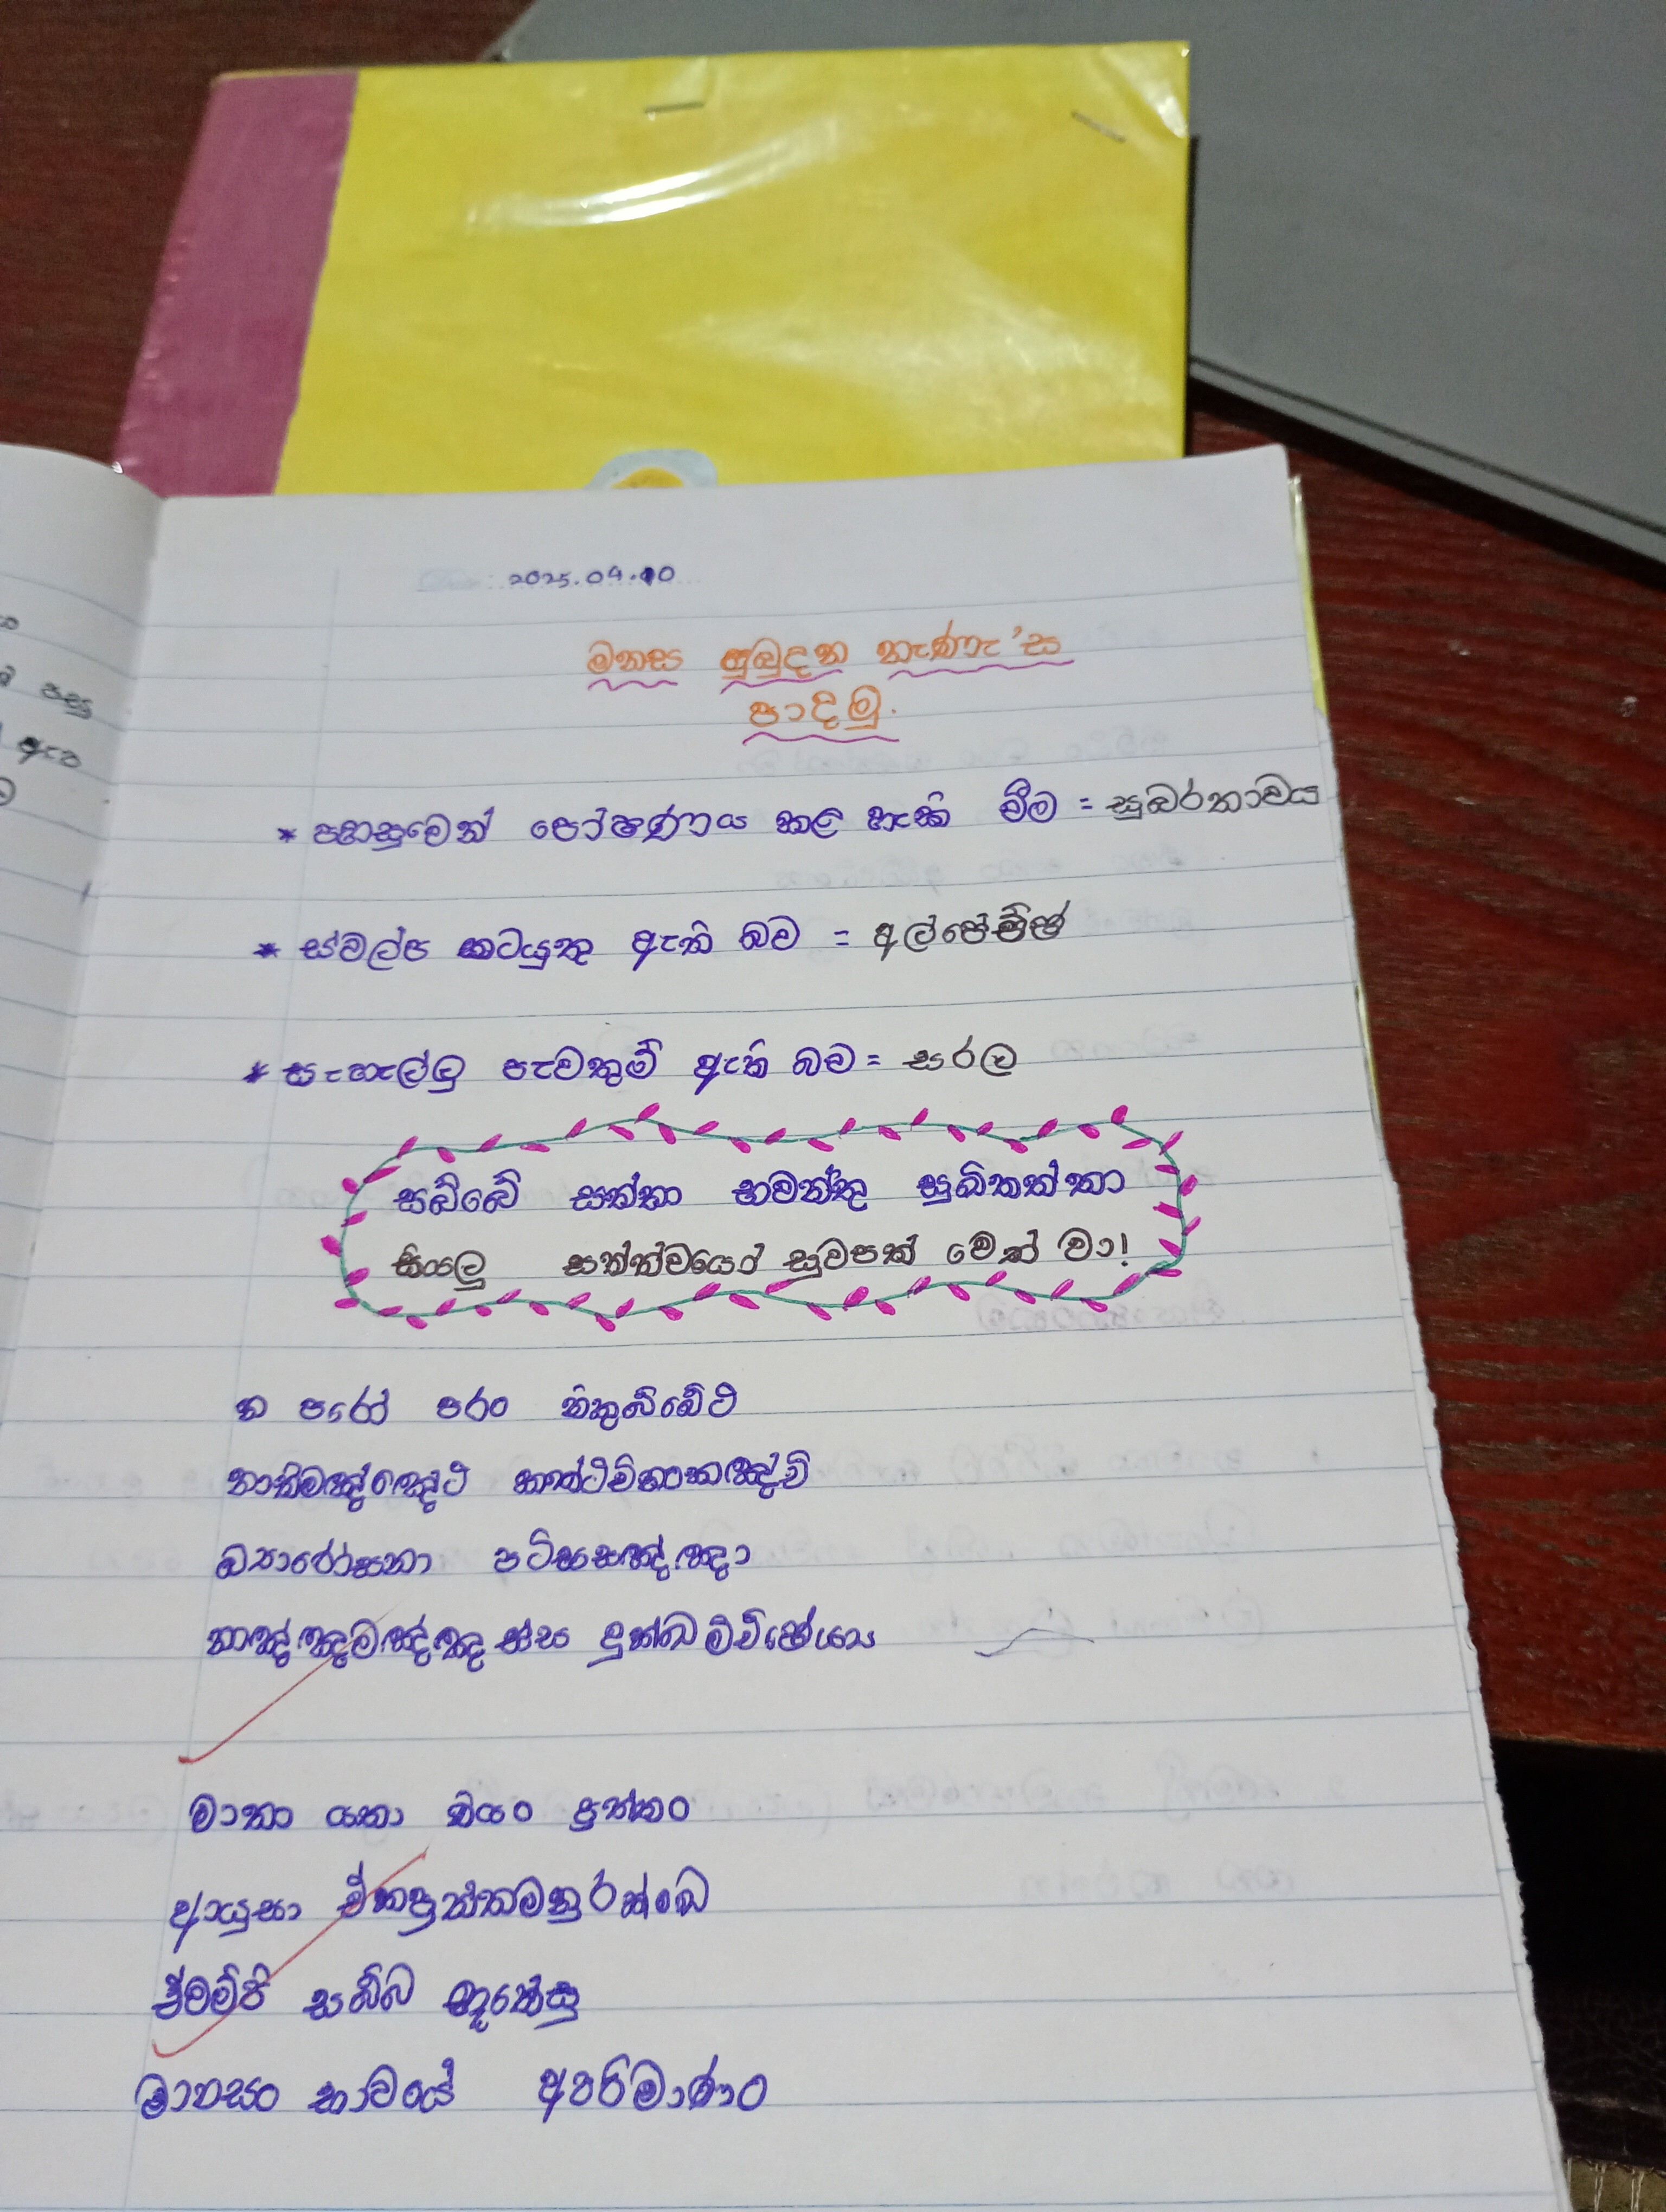 2025.09.10
මනස සුමුදන තැණැ'ස
පාදමු.
* පහසුවෙන් පෝෂණය කළ හැකි වීම = සුබරතාවය
* ස්වල්ප කටයුතු ඇති බව = අල්පේච්ඡ
* සැහැල්ලු පැවතුම් ඇති බව = සරල
සබ්බේ සත්තා භවන්තු සුඛිතත්තා
සියලු සත්ත්වයෝ සුවපත් වෙත් වා!
න පරෝ පරං නිකුබ්බේථ
නාතිමඤ්ඤේථ කත්ථචිනංකඤ්චි
බ්‍යාරෝසනා පටිඝසඤ්ඤා
නාඤ්ඤමඤ්ඤස්ස දුක්ඛමිච්ඡේය්‍ය
මාතා යතා නියං පුත්තං
ආයුසා ඒකපුත්තමනුරක්ඛෙ
ඒවම්පි සබ්බ භූතේසු
මානසං භාවයේ අපරිමාණං
පසු
ඇත